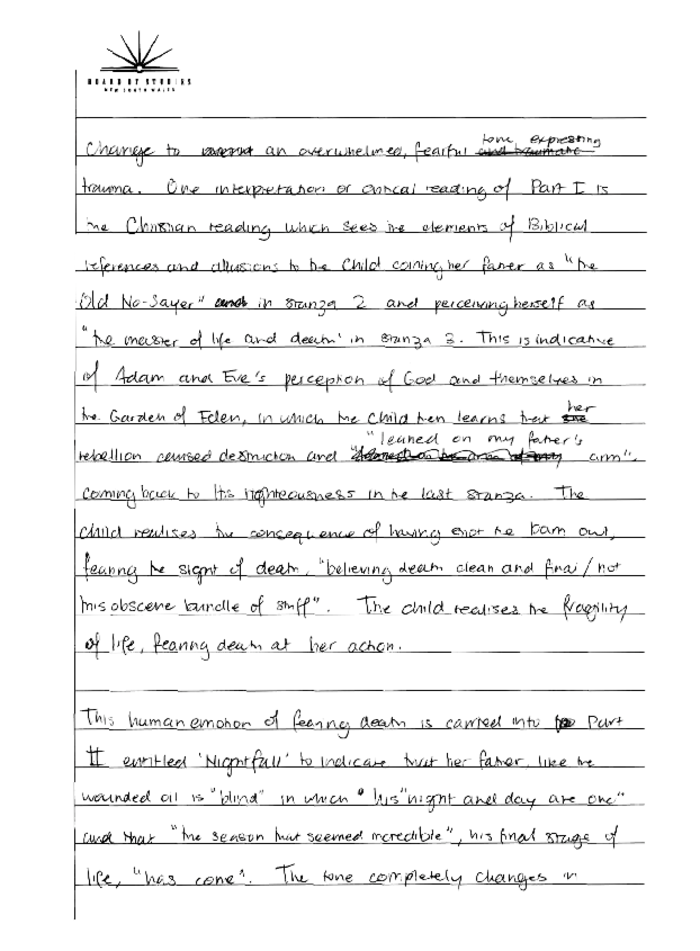 BOARD OF STUDIES
NEW SOUTH WALES
Change to an overwhelmed, fearful tone expressing
trauma. One interpretation or critical reading of Part I is
the Christian reading which sees the elements of Biblical
references and allusions to the Child calling her father as "the
Old No-Sayer" in stanza 2 and perceiving herself as
"the master of life and death' in stanza 3. This is indicative
of Adam and Eve's perception of God and themselves in
the Garden of Eden, in which the child then learns that her
rebellion caused destruction and "leaned on my father's arm".
coming back to his righteousness in the last stanza. The
child realises the consequence of having shot the barn owl,
fearing the sight of death, "believing death clean and final / not
this obscene bundle of stuff". The child realises the fragility
of life, fearing death at her action.
This human emotion of fearing death is carried into Part
II entitled 'Nightfall' to indicate that her father, like the
wounded owl is "blind" in which "his "night and day are one"
and that "the season that seemed incredible", his final stage of
life, "has come". The tone completely changes in